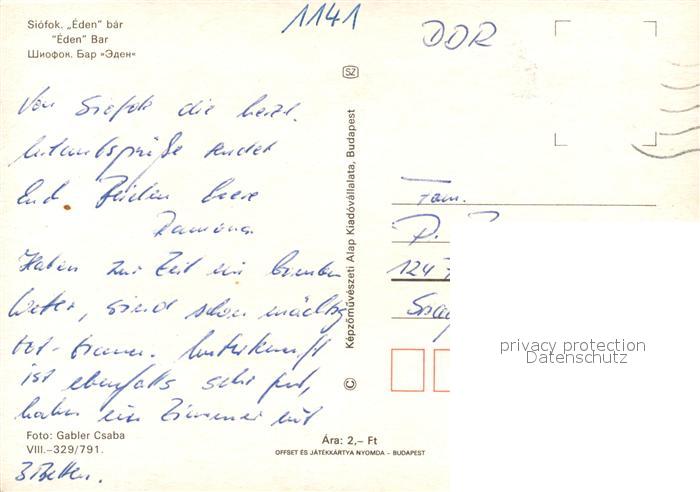 Siófok. „Éden" bár
"Éden" Bar
Шиофок. Бар »Эден«
1141
DDR
SZ
Von Siofok die herzl.
Urlaubsgrüße sendet
Euch Beiden Eure
Ramona
Haben zur Zeit ein bomben
Wetter, sind schon mächtig
rot-braun. Unterkunft
ist ebenfalls sehr gut,
haben ein Zimmer mit
3 Betten.
Foto: Gabler Csaba
VIII.–329/791.
© Képzőművészeti Alap Kiadóvállalata, Budapest
Ára: 2,– Ft
OFFSET ÉS JÁTÉKKÁRTYA NYOMDA – BUDAPEST
Fam.
P.
124
privacy protection
Datenschutz